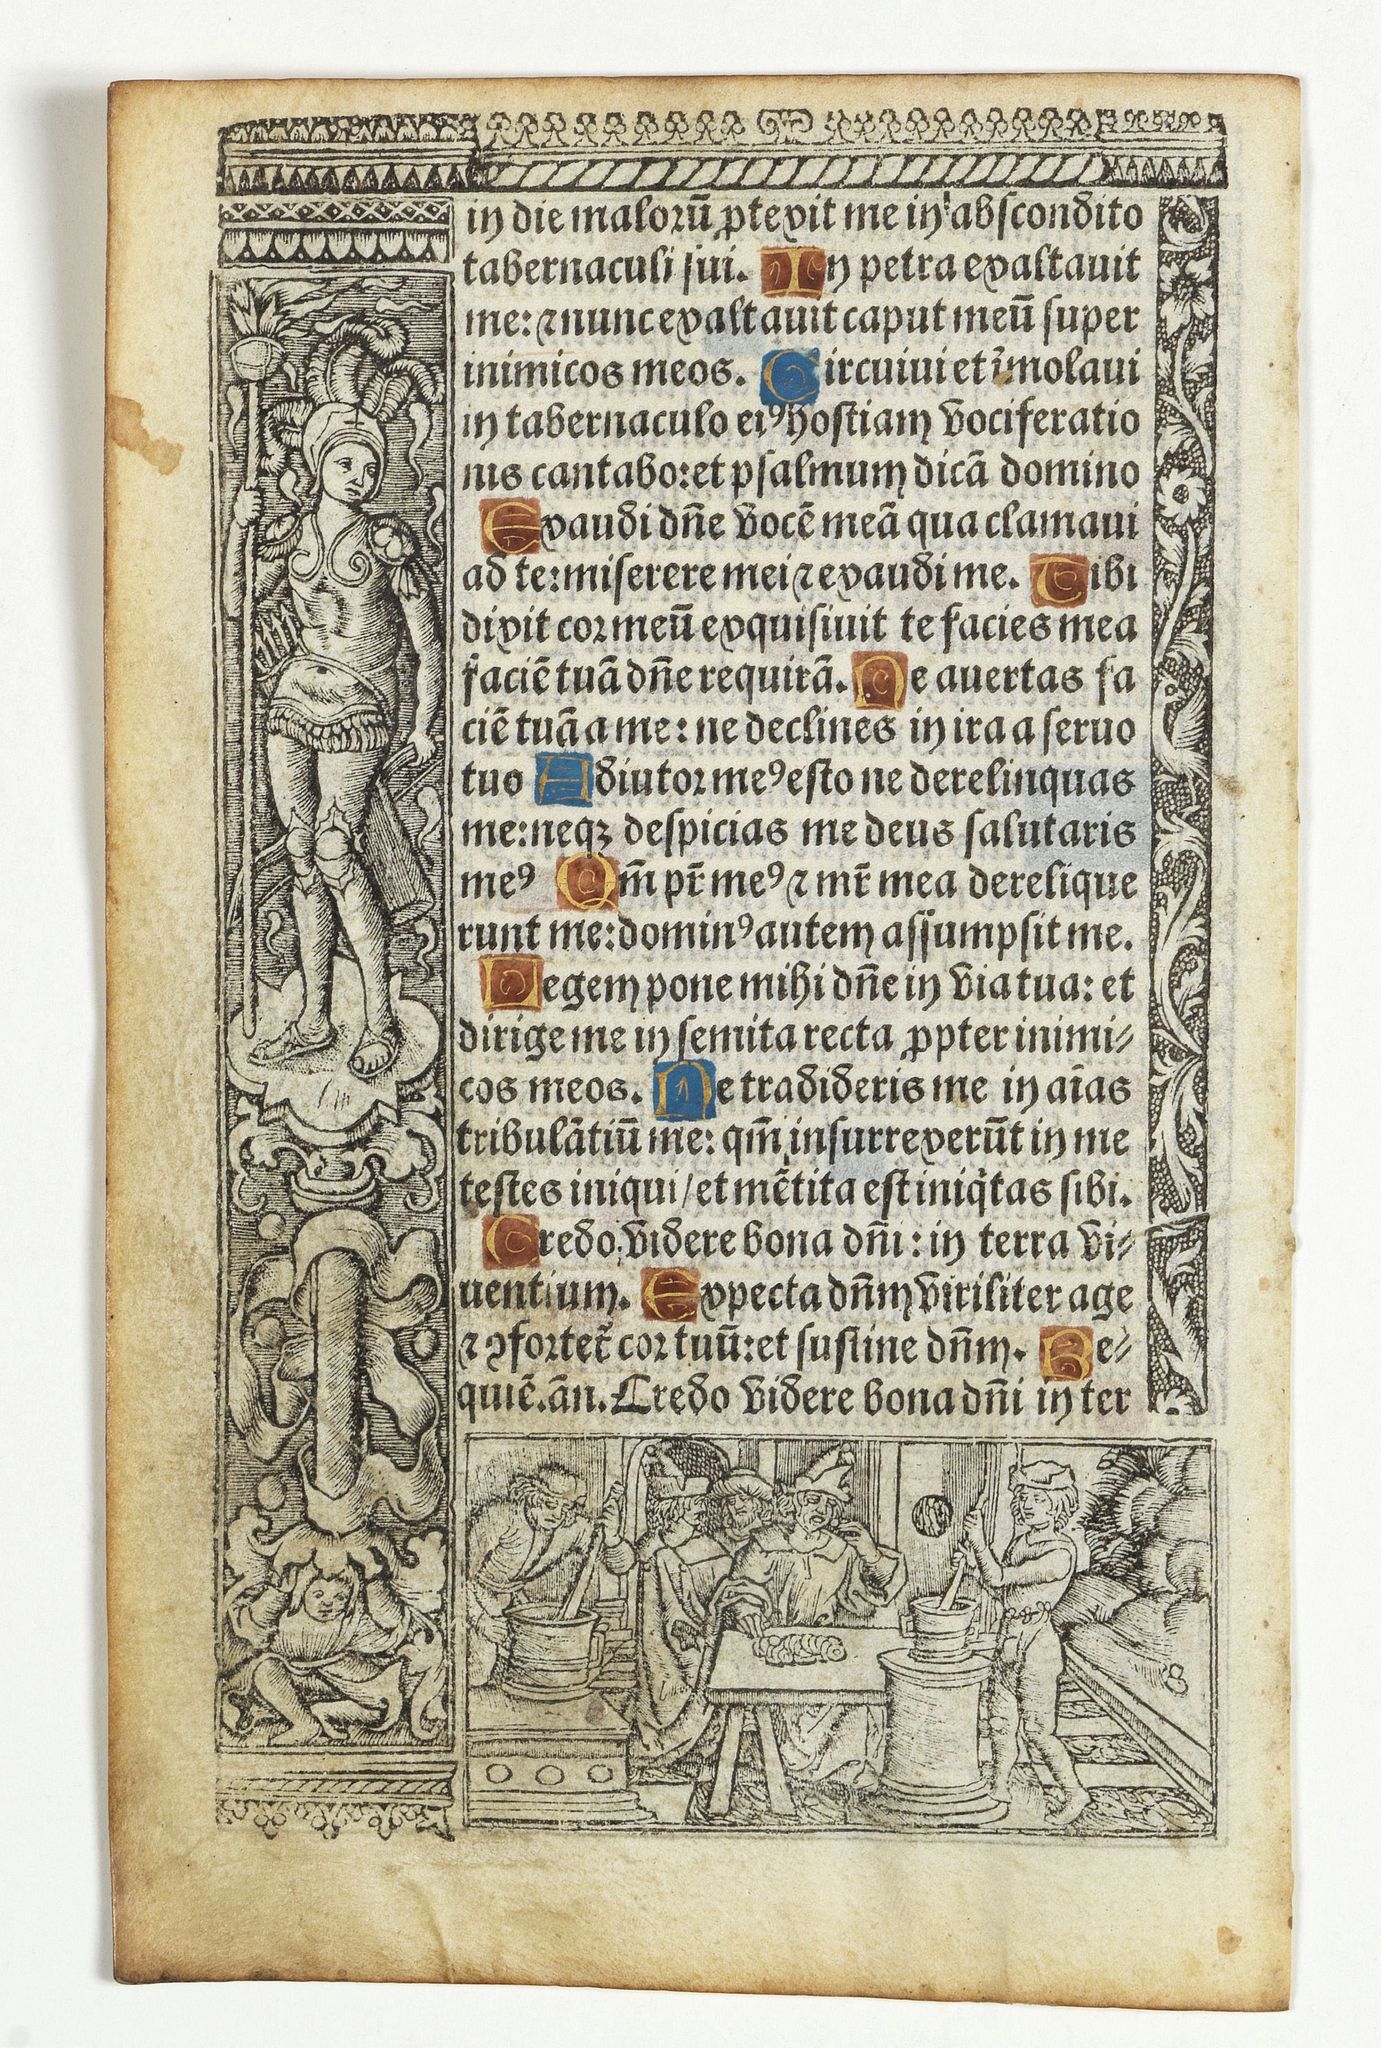 in die maloꝝū ꝓtexit me in abscondito
tabernaculi sui. In petra exaltauit
me: ⁊ nunc exaltauit caput meū super
inimicos meos. Circuiui et īmolaui
in tabernaculo eiꝰ hostiam vociferatio
nis cantabo: et psalmum dicā domino
Exaudi dn̄e vocē meā qua clamaui
ad te: miserere mei ⁊ exaudi me. Tibi
dixit cor meū exquisiuit te facies mea
faciē tuā dn̄e requirā. Ne auertas fa
ciē tuā a me: ne declines in ira a seruo
tuo Adiutor meꝰ esto ne derelinquas
me: neqꝫ despicias me deus salutaris
meꝰ Qm̄ pr̄ meꝰ ⁊ mr̄ mea derelique
runt me: dominꝰ autem assumpsit me.
Legem pone mihi dn̄e in via tua: et
dirige me in semita recta ꝓpter inimi⸗
cos meos. Ne tradideris me in aīas
tribulātiū me: qm̄ insurrexerūt in me
testes iniqui/ et mētita est iniqͥtas sibi.
Credo videre bona dn̄i: in terra vi⸗
uentium. Expecta dn̄m viriliter age
⁊ ꝯforteť cor tuū: et sustine dn̄m. Re⸗
quiē. an̄. Credo videre bona dn̄i in ter